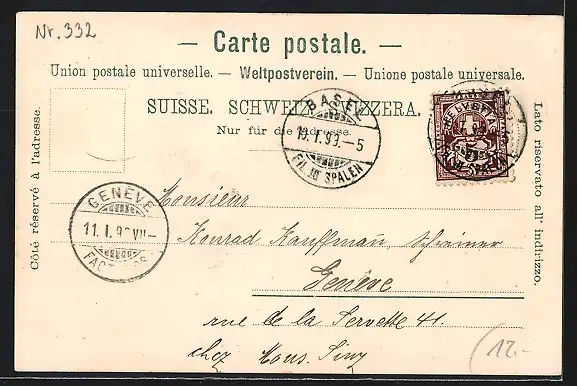 Nr. 332
— Carte postale. —
Union postale universelle. — Weltpostverein. — Unione postale universale.
SUISSE. SCHWEIZ. SVIZZERA.
Nur für die Adresse.
Côté réservé à l'adresse.
Lato riservato all' indirizzo.
BASEL
FIL. SPALEN
GENÈVE
11. I.
Monsieur
Konrad Kauffmann, Schreiner
Genève
rue de la Servette 41.
chez Mons.
12.-